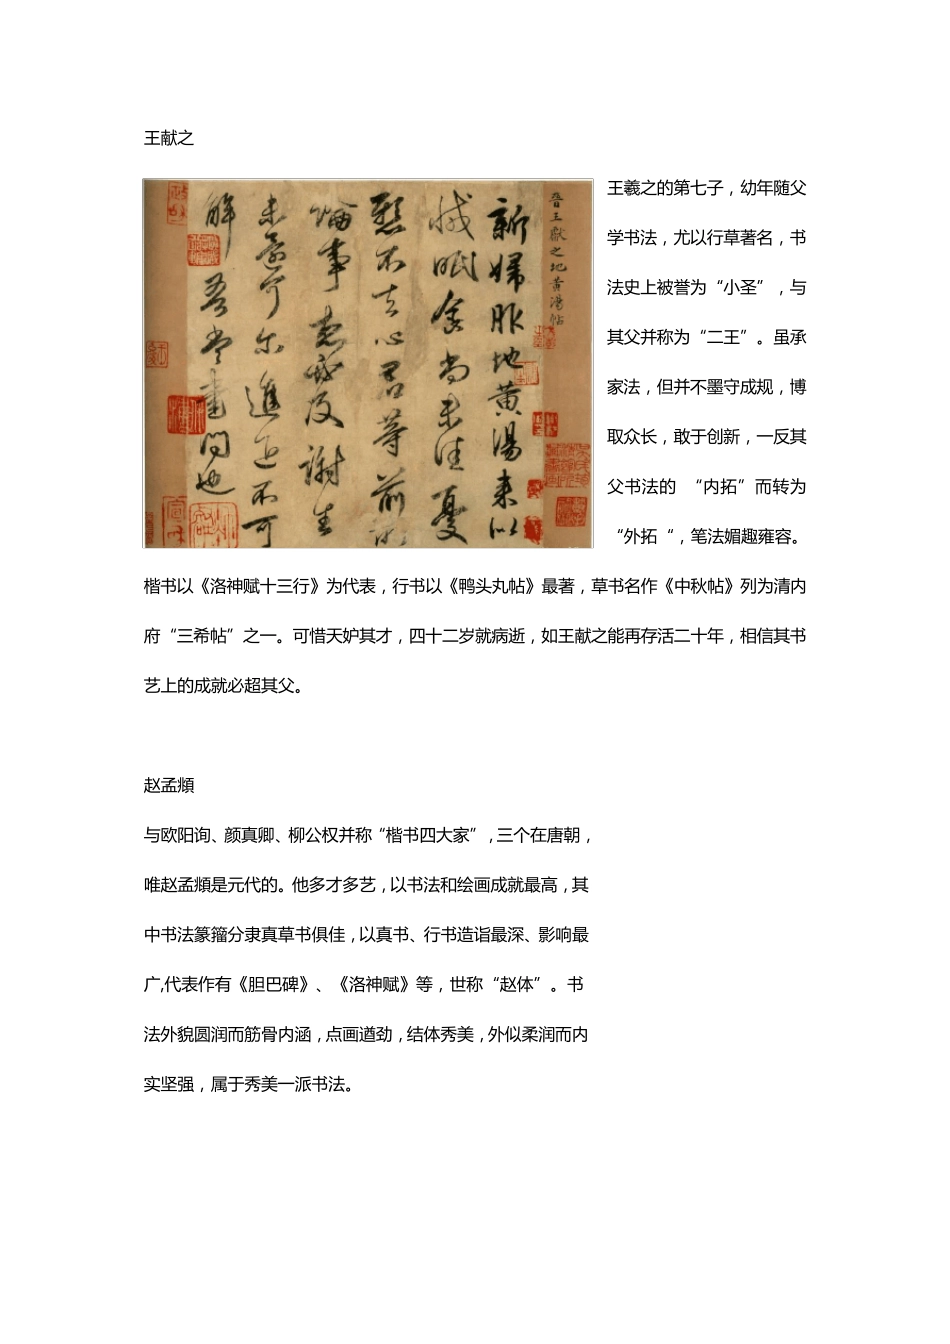 王献之
晉王獻之地黃湯帖
新婦服地黃湯來似
減眠食尚未佳憂
懸不去心君等前所
論事想必及謝生
未還可爾進退不可
解吾當書問也
王羲之的第七子，幼年随父
学书法，尤以行草著名，书
法史上被誉为“小圣”，与
其父并称为“二王”。虽承
家法，但并不墨守成规，博
取众长，敢于创新，一反其
父书法的 “内拓”而转为
“外拓“，笔法媚趣雍容。
楷书以《洛神赋十三行》为代表，行书以《鸭头丸帖》最著，草书名作《中秋帖》列为清内
府“三希帖”之一。可惜天妒其才，四十二岁就病逝，如王献之能再存活二十年，相信其书
艺上的成就必超其父。
赵孟頫
与欧阳询、颜真卿、柳公权并称“楷书四大家”，三个在唐朝，
唯赵孟頫是元代的。他多才多艺，以书法和绘画成就最高，其
中书法篆籀分隶真草书俱佳，以真书、行书造诣最深、影响最
广,代表作有《胆巴碑》、《洛神赋》等，世称“赵体”。书
法外貌圆润而筋骨内涵，点画遒劲，结体秀美，外似柔润而内
实坚强，属于秀美一派书法。